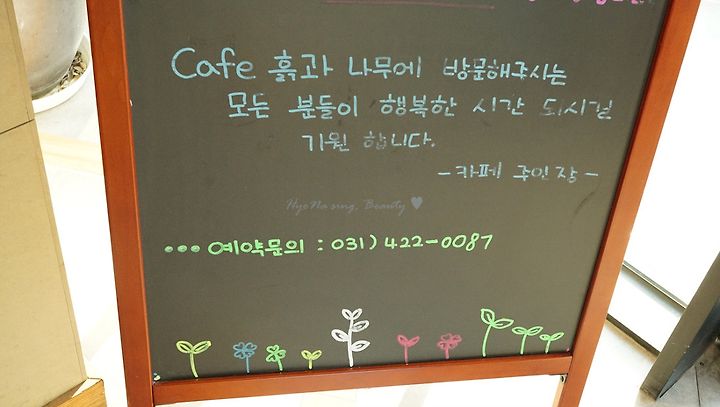 Cafe 흙과 나무에 방문해주시는
모든 분들이 행복한 시간 되시길
기원 합니다.
- 카페 주인장 -
HyoNa sing. Beauty ♥
••• 예약문의 : 031) 422-0087